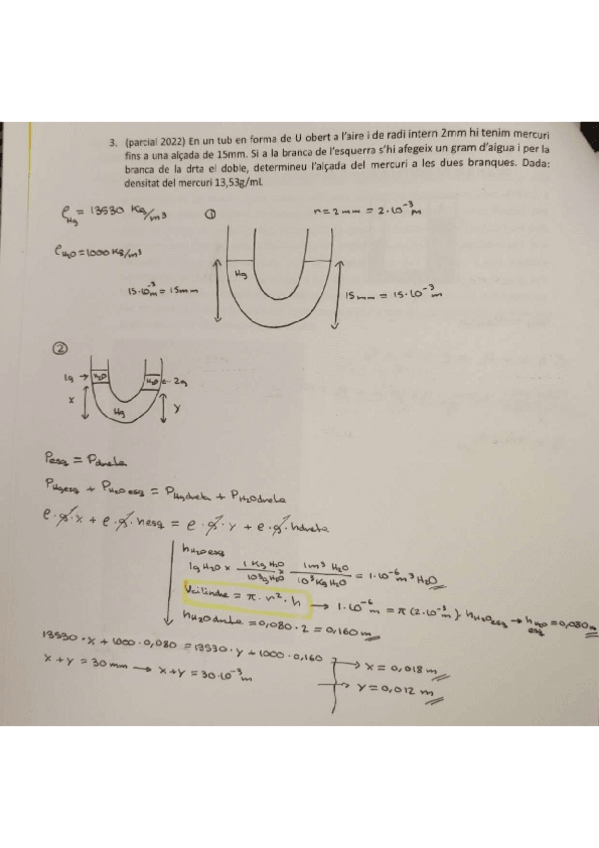 3. (parcial 2022) En un tub en forma de U obert a l'aire i de radi intern 2mm hi tenim mercuri
fins a una alçada de 15mm. Si a la branca de l'esquerra s'hi afegeix un gram d'aigua i per la
branca de la drta el doble, determineu l'alçada del mercuri a les dues branques. Dada:
densitat del mercuri 13,53g/ml.
ρHg = 13530 Kg/m³
①
r = 2mm = 2·10⁻³ m
ρH₂O = 1000 Kg/m³
Hg
15·10⁻³ m = 15mm
15mm = 15·10⁻³ m
②
1g → H₂O
H₂O ← 2g
x
Hg
y
Pesq = Pdreta
PHg esq + PH₂O esq = PHg dreta + PH₂O dreta
ρ·g·x + ρ·g·hesq = ρ·g·y + ρ·g·hdreta
hH₂O esq
1g H₂O × 1 Kg H₂O / 10³g H₂O × 1m³ H₂O / 10³ Kg H₂O = 1·10⁻⁶ m³ H₂O
Vcilindre = π·r²·h → 1·10⁻⁶ m = π(2·10⁻³)·hH₂O esq → hH₂O esq = 0,080 m
hH₂O dreta = 0,080·2 = 0,160 m
13530·x + 1000·0,080 = 13530·y + 1000·0,160
x + y = 30 mm → x + y = 30·10⁻³ m
→ x = 0,018 m
→ y = 0,012 m